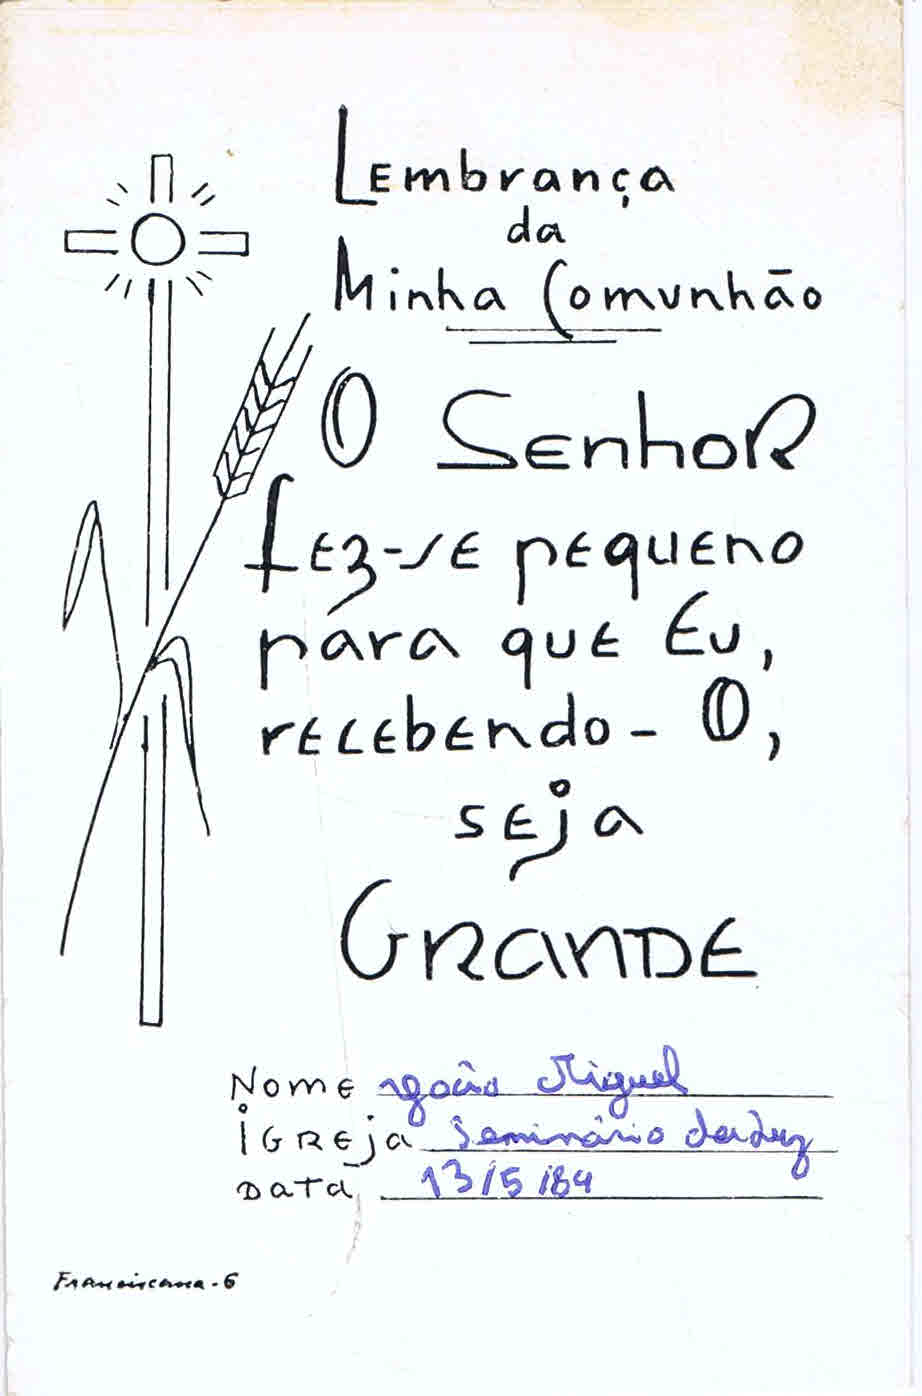 Lembrança
da
Minha Comunhão
O Senhor
fez-se pequeno
para que Eu,
recebendo-O,
seja
GRANDE
Nome João Miguel
IGREJA Seminário da Luz
DATA 13/5/84
Franciscana-6